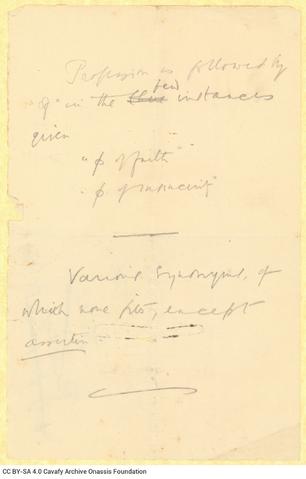 Profession is followed by
"of" in the two instances
given
"p of faith"
p of insincerity"
Various synonyms, of
which none fits, except
assertion
CC BY-SA 4.0 Cavafy Archive Onassis Foundation